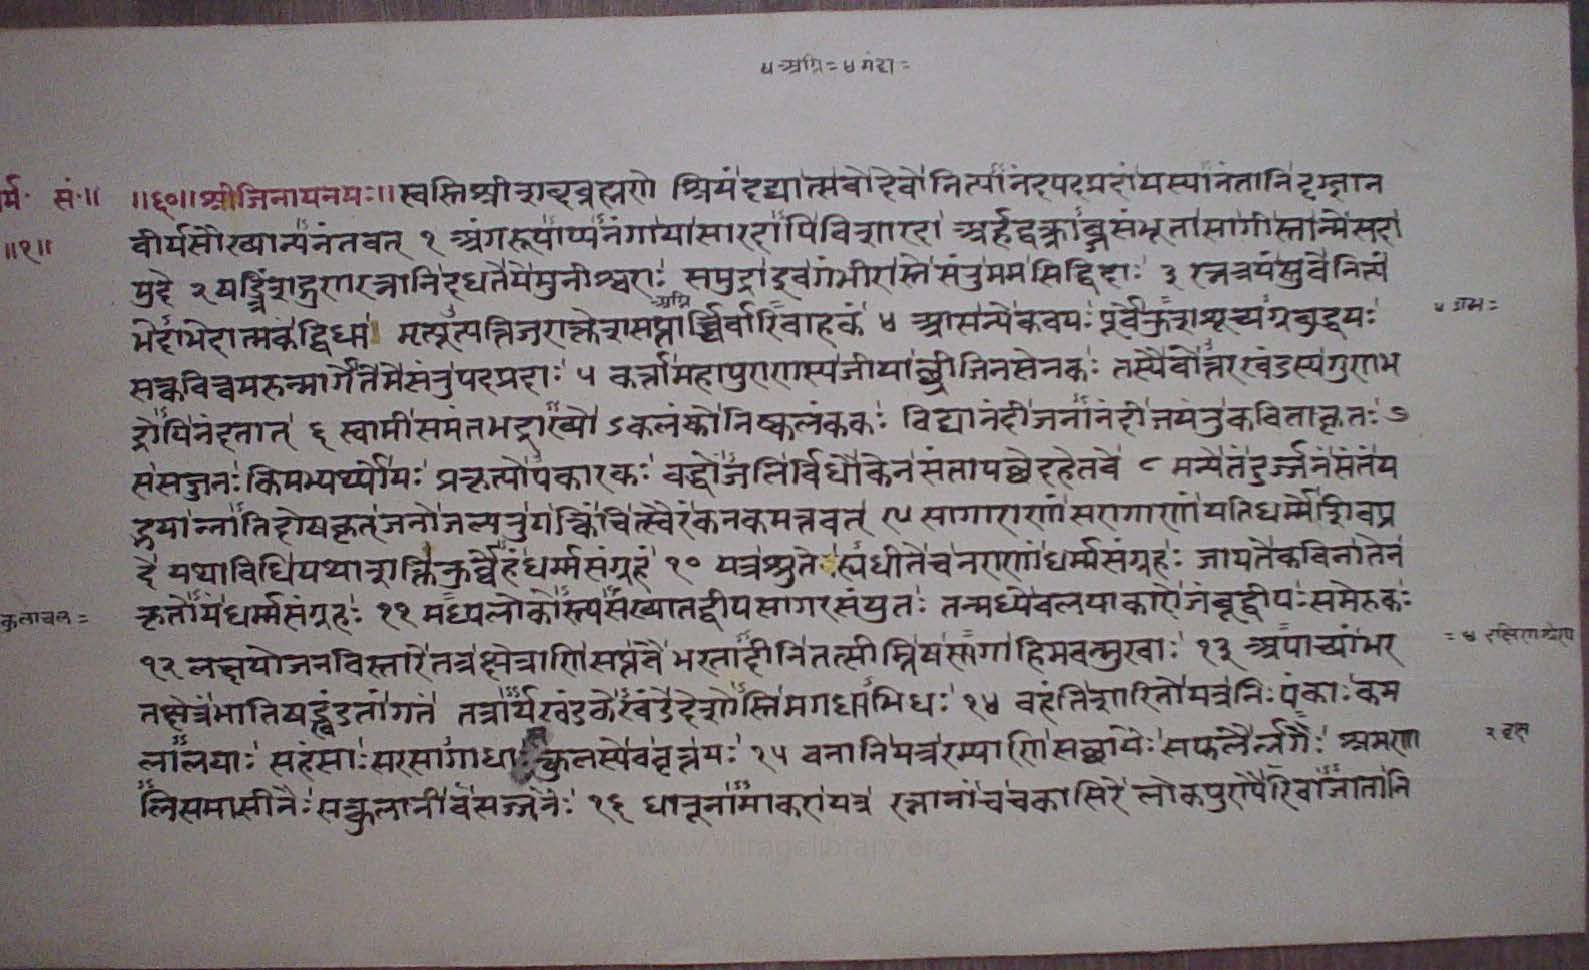 ५ अग्नि = ४ मंदा =
र्म॰ सं॰॥ ॥६०॥ श्रीजिनायनमः॥ स्वस्तिश्रीशब्दब्रह्मणे श्रियंदद्यात्मवोदेवोनित्यानंदपदप्रदोयस्यानंतानिदृग्ज्ञान
॥१॥ वीर्यसौख्यान्यनंतवत् १ अंगरूपाप्यनंगायासारदापिविशारदा अर्हद्वक्त्राब्जसंभूतासागीस्तान्मेसदा
मुदे २ षट्त्रिंशद्गुणरत्नानिदधतेयेमुनीश्वराः समुद्राइवगंभीरास्तेसंतुममसिद्धिदाः ३ रत्नत्रयंस्तुवेनित्यं
अग्नि
भेदाभेदात्मकंद्विधा मृत्यूत्पत्तिजराक्लेशसप्तार्च्चिर्वारिवाहकं ४ आसन्येकवयःपूर्वेकुशाग्र्यग्रबुद्धयः
सत्कवित्वमरुन्मार्गेतेमेसंतुपदप्रदाः ५ कर्त्तामहापुराणस्यजीयाच्छ्रीजिनसेनकः तस्यैवोत्तरखंडस्यगुणभ
द्रोपिनंदतात् ६ स्वामीसमंतभद्राख्योऽकलंकोनिष्कलंककः विद्यानंदीजनानंदीजयंतुकविताकृतः ७
ससज्जनःकिमभ्यर्थ्योयःप्रकृत्योपकारकः बद्धोंजलिर्विधौकेनसंतापच्छेदहेतवे ८ मन्येतंदुर्ज्जनंसंतंय
द्भयान्नातिदोषकृत्जनोजल्पतुयत्किंचित्स्वैरंकनकमत्तवत् ९ सागाराणांसरागाणांयतिधर्म्मेशिवप्र
दे यथाविधियथाशक्तिकुर्व्वेहंधर्म्मसंग्रहं १० यत्रश्रुतेह्यधीतेचनराणांधर्म्मसंग्रहः जायतेकविनातेन
कृतोयंधर्म्मसंग्रहः ११ मध्यलोकोस्त्यसंख्यातद्वीपसागरसंयुतः तन्मध्येवलयाकारोजंबूद्वीपःसमेरुकः
कुलाचल =
१२ लक्षयोजनविस्तारेतत्रक्षेत्राणिसप्तवै भरतादीनितत्सीम्नियसागाहिमवन्मुखाः १३ अपाच्यांभर
तक्षेत्रंभातिषट्खंडतांगतं तत्रार्यखंडकेखंडेदेशोस्तिमगधाभिधः १४ वहंतिशरितोयत्रनिःपंकाःकम
लालयाः सहंसाःसरसागाधाःकुलस्येववृत्तयः १५ वनानियत्ररम्याणिसच्छायैःसफलैर्त्नगैः भ्रमरा
२ वृक्ष
लिसमासीनैःसत्कुलानीवसज्जनैः १६ धातूनामाकरायत्र रत्नानांचचकासिरे लोकपुण्यैरिवाजातानि
www.vitragelibrary.org